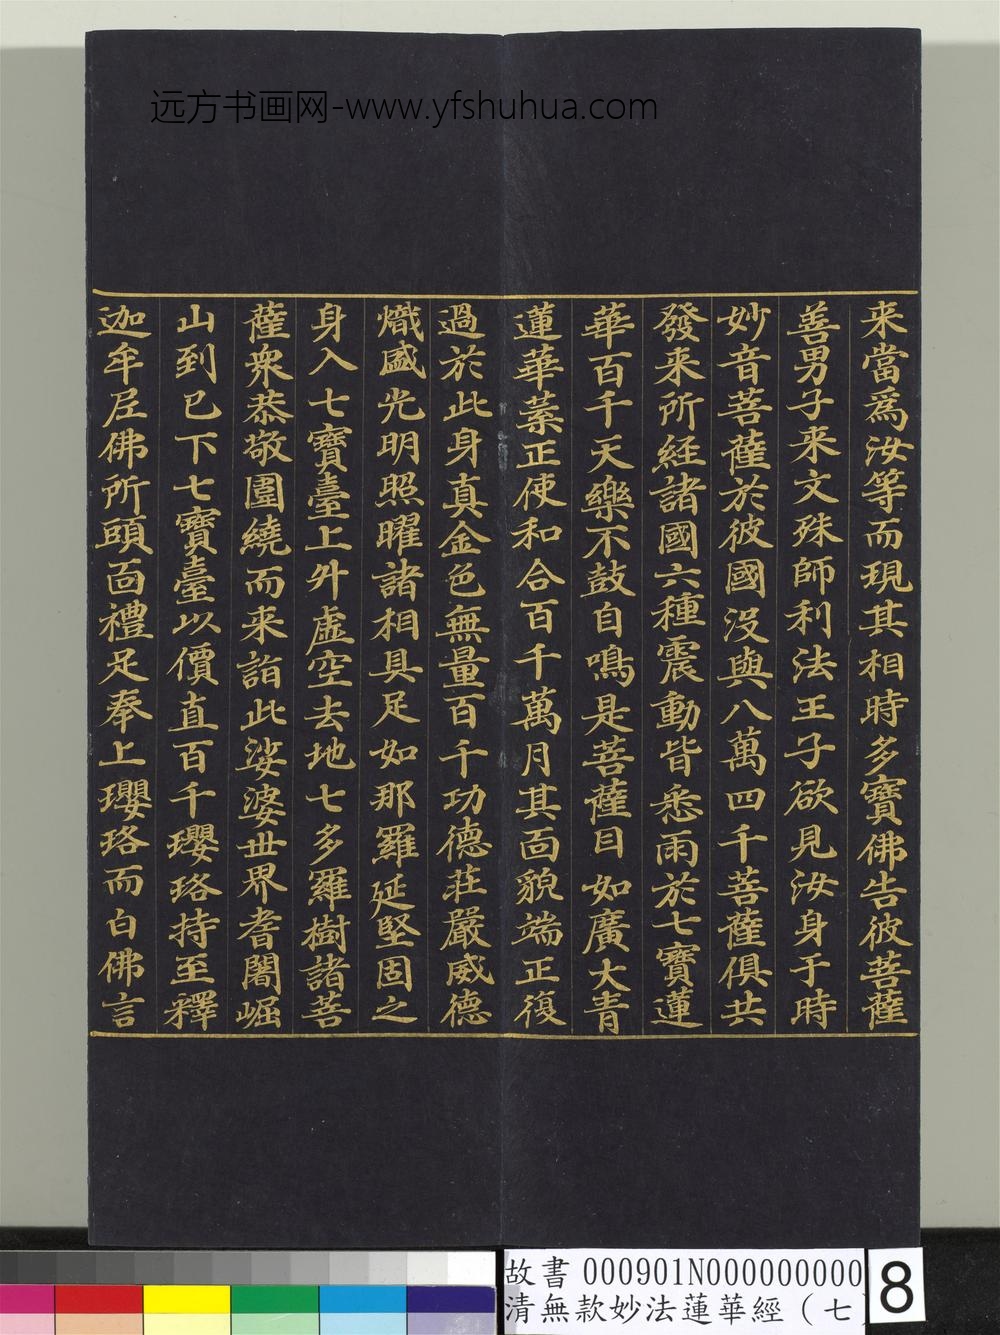 远方书画网-www.yfshuhua.com
来當為汝等而現其相時多寶佛告彼菩薩
善男子来文殊師利法王子欲見汝身于時
妙音菩薩於彼國没與八萬四千菩薩俱共
發来所經諸國六種震動皆悉雨於七寶蓮
華百千天樂不鼓自鳴是菩薩目如廣大青
蓮華葉正使和合百千萬月其面貌端正復
過於此身真金色無量百千功德莊嚴威德
熾盛光明照曜諸相具足如那羅延堅固之
身入七寶臺上升虛空去地七多羅樹諸菩
薩衆恭敬圍繞而来詣此娑婆世界耆闍崛
山到已下七寶臺以價直百千瓔珞持至釋
迦牟尼佛所頭面禮足奉上瓔珞而白佛言
故書 000901N000000000
清無款妙法蓮華經（七）
8